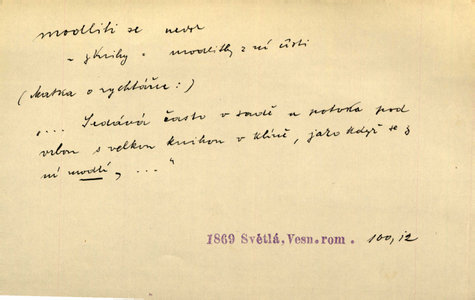 modliti se nedok
- z knihy - modlitby z ní čísti
(Matka o rychtáři:)
„... Sedává často v sadě u potoka pod
vrbou s velkou knihou v klíně, jako když se z
ní modlí, ..."
1869 Světlá, Vesn.rom. 100,12